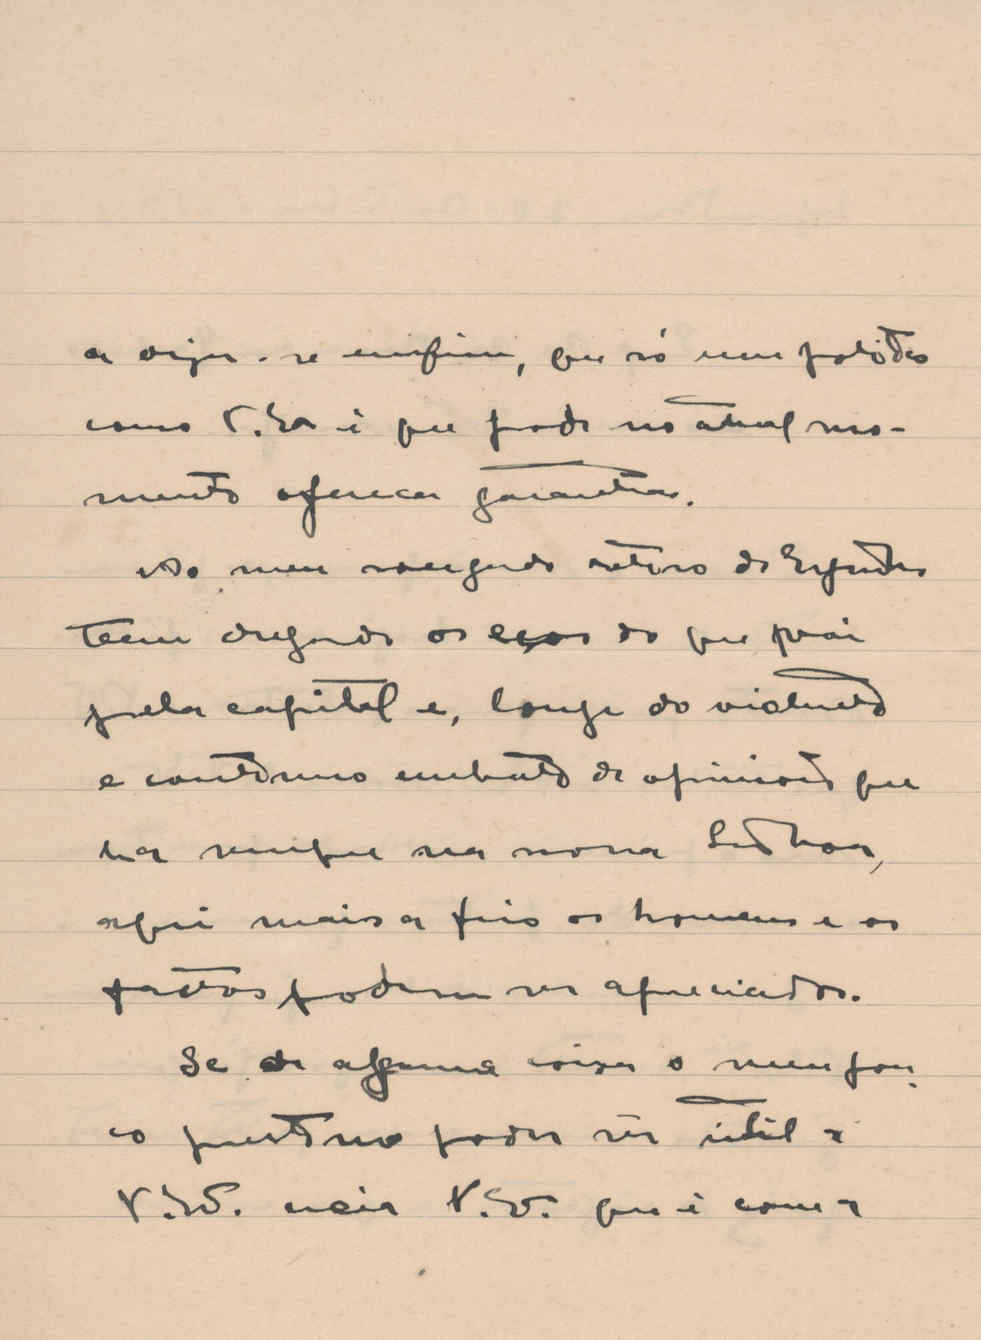 a dizer-se emfim, que só um politico
como V. Exª é que pode no atual mo-
mento oferecer garantias.
Ao meu socegado retiro de Espinho
teem chegado os ecos do que vai
pela capital e, longe do violento
e continuo embate de opiniões que
ha sempre na nossa Lisboa,
aqui mais a frio os homens e os
factos podem ser apreciados.
Se de alguma coisa o meu pou-
co prestimo poder ser util a
V. Exª. creia V. Exª. que é com a